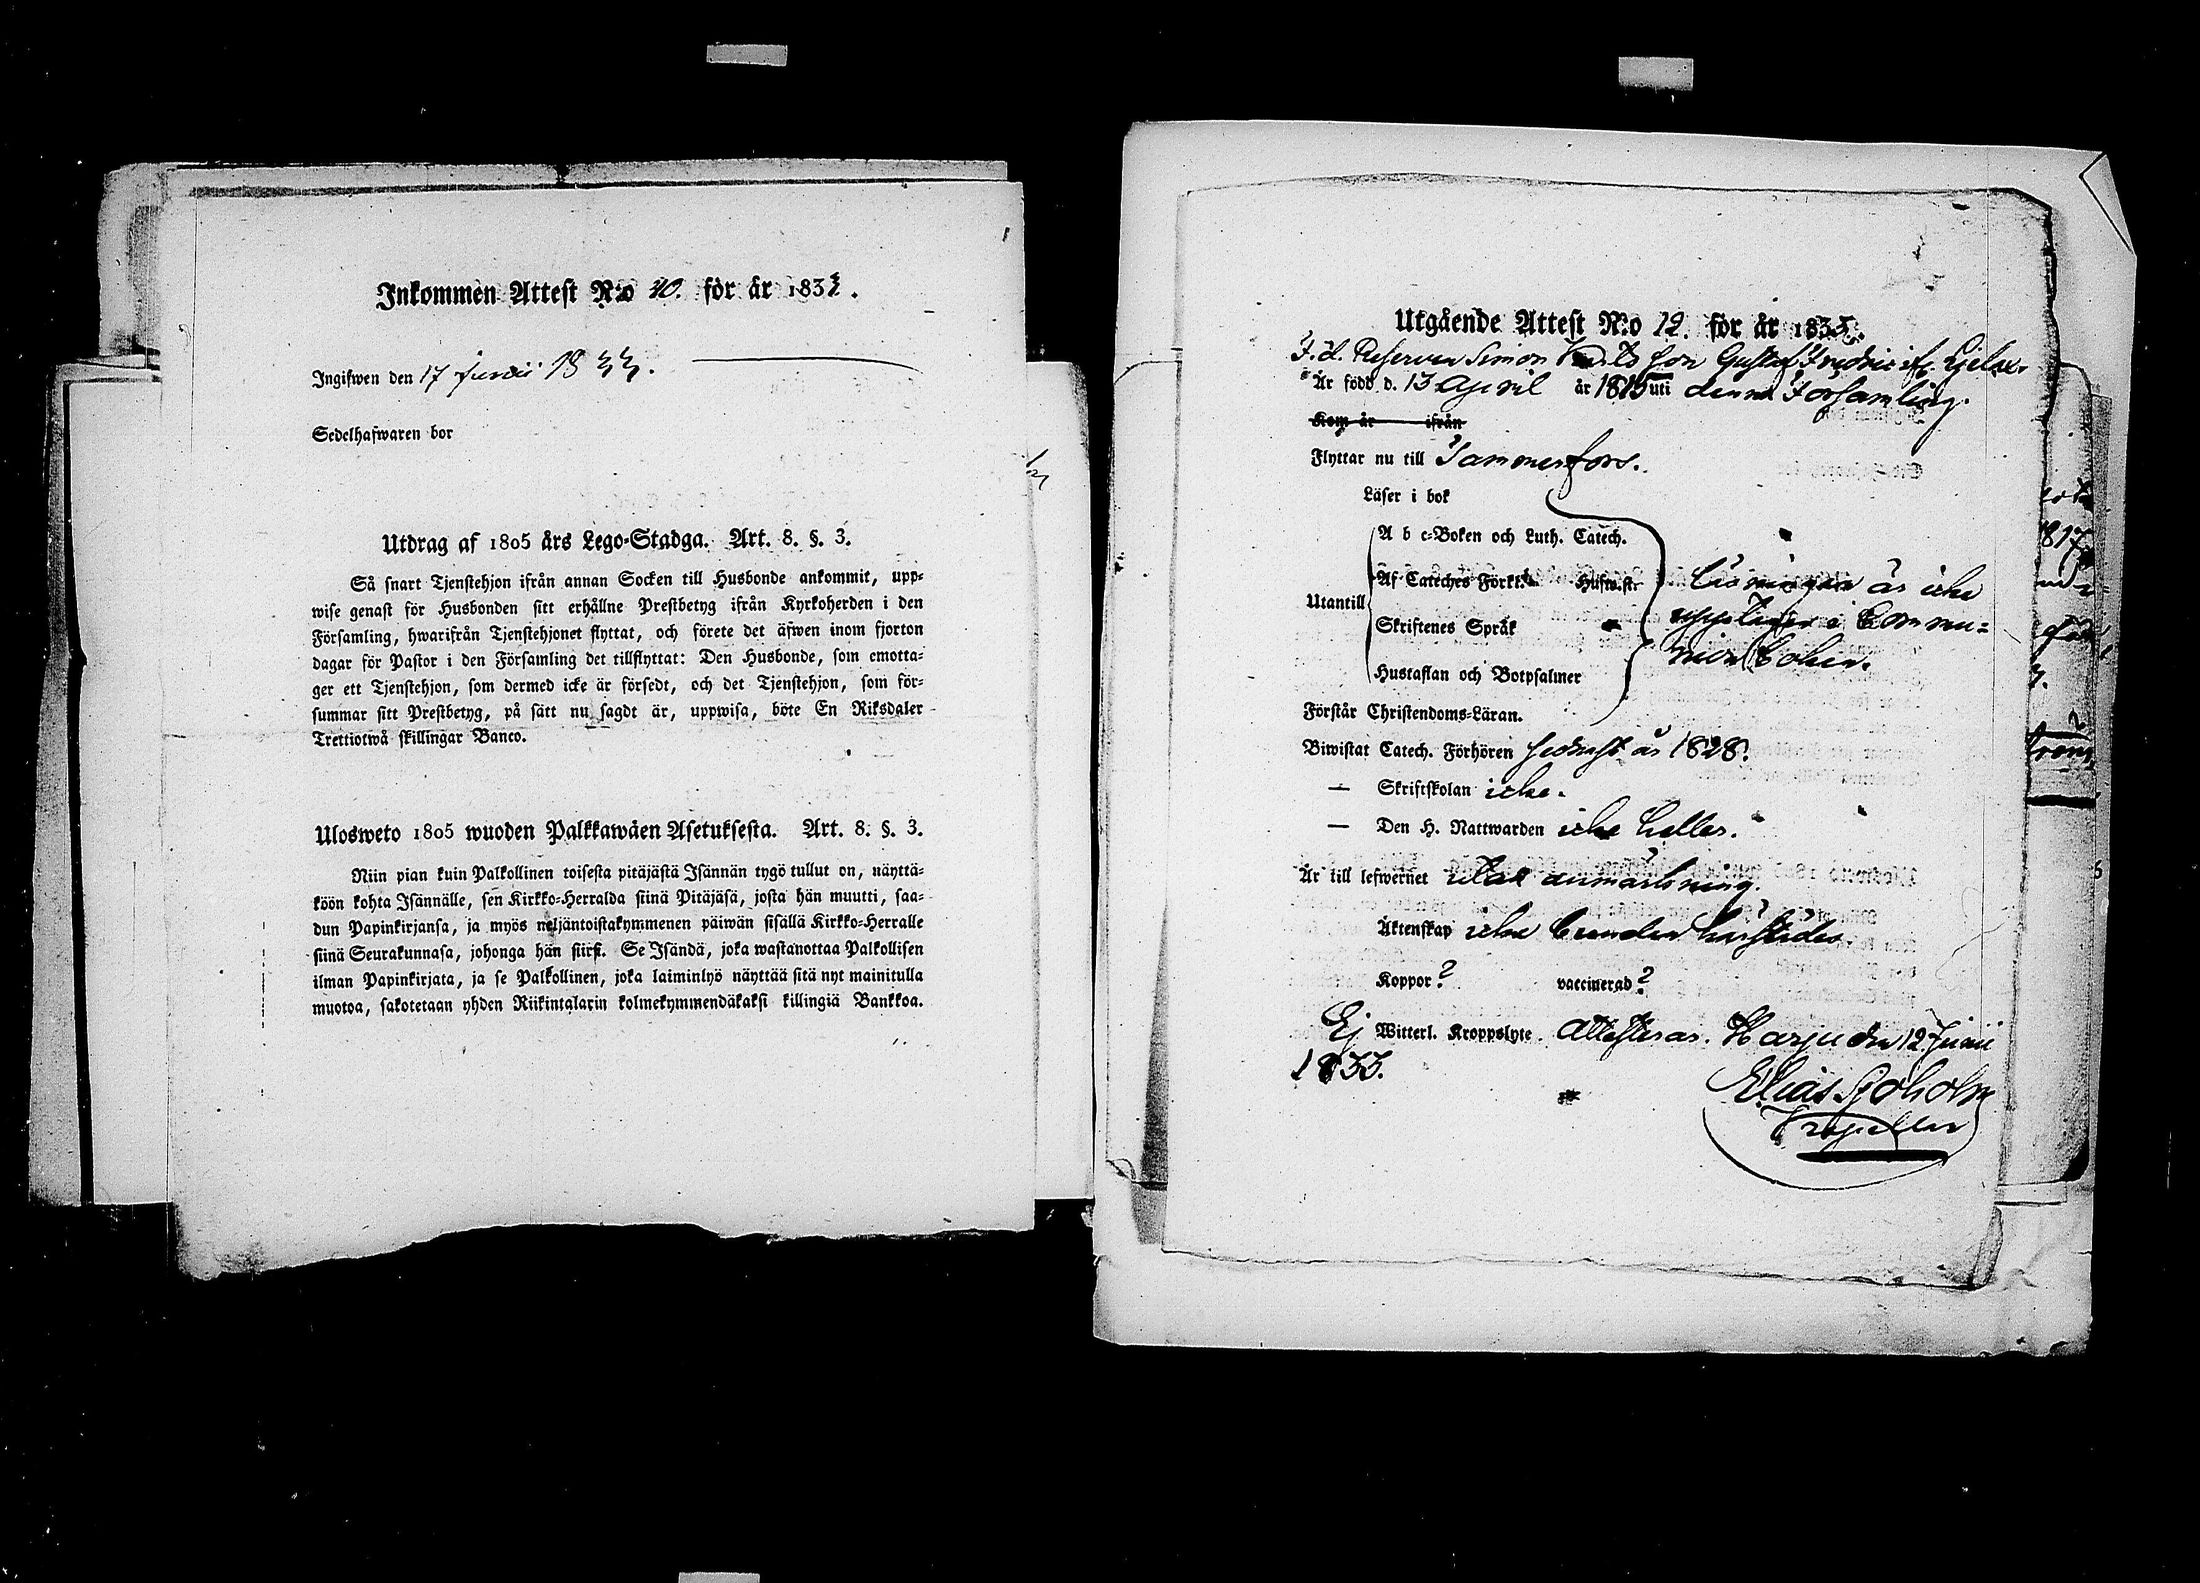 Inkommen Attest N:o 30. för år 1833.
Ingifwen den 17 Junii 1833.
Sedelhafwaren bor
Utdrag af 1805 års Lego-Stadga. Art. 8. §. 3.
Så snart Tjenstehjon ifrån annan Socken till Husbonde ankommit, upp-
wise genast för Husbonden sitt erhållne Prestbetyg ifrån Kyrkoherden i den
Församling, hwarifrån Tjenstehjonet flyttat, och förete det äfwen inom fjorton
dagar för Pastor i den Församling det tillflyttat: Den Husbonde, som emotta-
ger ett Tjenstehjon, som dermed icke är försedt, och det Tjenstehjon, som för-
summar sitt Prestbetyg, på sätt nu sagdt är, uppwisa, böte En Riksdaler
Trettiotwå skillingar Banco.
Ulosweto 1805 wuoden Palkkawäen Asetuksesta. Art. 8. §. 3.
Niin pian kuin Palkollinen toisesta pitäjästä Isännän tygö tullut on, näyttä-
köön kohta Isännälle, sen Kirkko-Herralda siinä Pitäjäsä, josta hän muutti, saa-
dun Papinkirjansa, ja myös neljäntoistakymmenen päiwän sisällä Kirkko-Herralle
siinä Seurakunnasa, johonga hän siirsi. Se Isändä, joka wastanottaa Palkollisen
ilman Papinkirjata, ja se Palkollinen, joka laiminlyö näyttää sitä nyt mainitulla
muotoa, sakotetaan yhden Riikintalarin kolmekymmendäkaksi killingiä Bankkoa.
Utgående Attest N:o 12. för år 1833.
F.d. Reserven Simon son Gustaf Fredric
Är född d. 13 April år 1815 uti denna Församling.
Kom år ifrån
Flyttar nu till Tammerfors.
Läser i bok
A b c-Boken och Luth. Catech.
Af Cateches Förkl. Hufw.st.
Utantill
Skriftenes Språk
Hustaflan och Botpsalmer
Läsningen är icke
upptagen i Commu-
nion boken.
Förstår Christendoms-Läran.
Biwistat Catech. Förhören sednast år 1828.
— Skriftskolan icke.
— Den H. Nattwarden icke heller.
Är till lefwernet utan anmärkning.
Äktenskap icke bunden härstädes.
Koppor? vaccinerad?
Ej Witterl. Kroppslyte. Attesteras. Harju den 12 Junii
1833.
Elias Sjöholm